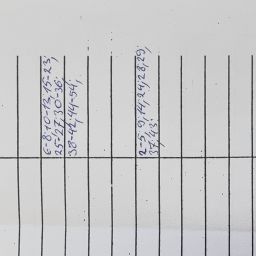 6-8; 10-13; 15-23;
25-27; 30-36;
38-42; 44-54;
2-5; 9; 14; 24; 28; 29;
37; 43;